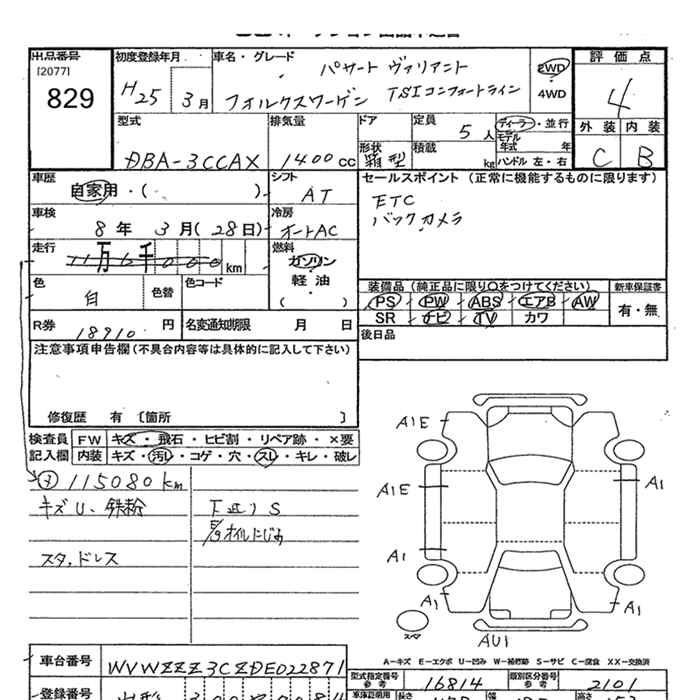 出品番号 初度登録年月 車名・グレード 評価点
[2077] パサート ヴァリアント 2WD
829 H25 3月 フォルクスワーゲン TSIコンフォートライン 4WD 4
型式 排気量 ドア 定員 5人 ディーラー・並行 外装 内装
モデル年式 年
DBA-3CCAX 1400cc 形状 箱型 積載 kg ハンドル 左・右 C B
車歴 自家用・( ) シフト AT セールスポイント (正常に機能するものに限ります)
ETC
車検 8年 3月(28日) 冷房 オートAC バックカメラ
走行 11万6千000km 燃料 ガソリン
軽油
( )
色 白 色替 色コード 装備品 (純正品に限り○をつけてください) 新車保証書
PS PW ABS エアB AW 有・無
R券 18910円 名変通知期限 月 日 SR ナビ TV カワ
注意事項申告欄(不具合内容等は具体的に記入して下さい) 後日品
修復歴 有 〔箇所 〕
検査員 FW キズ・飛石・ヒビ割・リペア跡・×要
記入欄 内装 キズ・汚レ・コゲ・穴・スレ・キレ・破レ
115080km
キズU、鉄粉 下廻りS
E/gオイルにじみ
スタッドレス
A1E
A1E A1
A1
A1 A1
スマ AU1
車台番号 WVWZZZ3CZDE022871
A-キズ E-エクボ U-凹み W-補修跡 S-サビ C-腐食 XX-交換済
型式指定番号 参考 16814 類別区分番号 参考 2101
登録番号